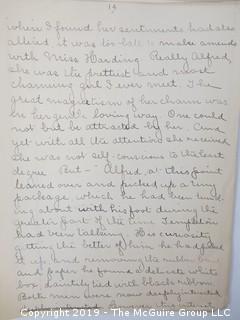 14
when I found her sentiments had also
altered it was too late to make amends
with Miss Harding. Really Alfred,
she was the prettiest and most
charming girl I ever met. The
great magnetism of her charm was
in her gentle loving way. One could
not but be attracted by her. And
yet with all the attention she received
She was not self-conscious to the least
degree. But-" Alfred, at this point
leaned over and picked up a tiny
package, which he had been
about with his foot during the
greater part of the time Templeton
had been talking. His curiosity
getting the better of him he had picked
it up, and removing the rubber band
and paper he found a delicate white
box, daintily tied with black ribbon.
Both men were now deeply interested
Copyright 2019 - The McGuire Group LLC